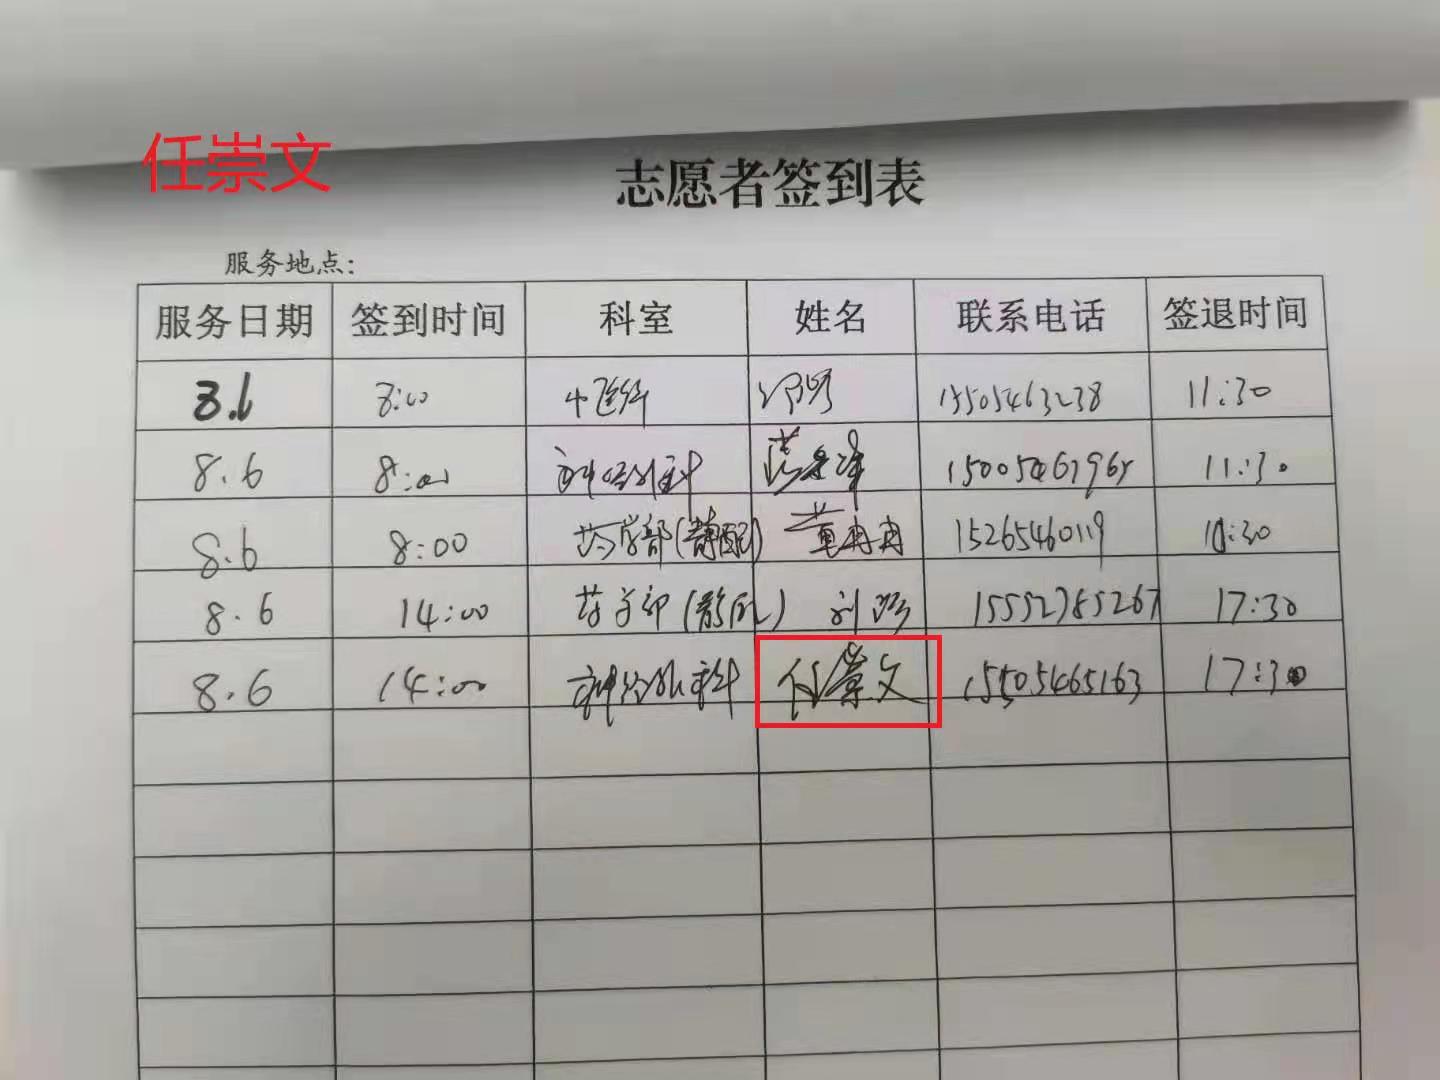 任崇文
志愿者签到表
服务地点:
服务日期 签到时间 科室 姓名 联系电话 签退时间
8:00 11:30
8.6 8:00 神经外科 11:30
8.6 8:00 药学部(静配) 董冉冉 15265460119
8.6 14:00 药学部(静配) 刘 15552785267 17:30
8.6 14:00 神经外科 任崇文 15505465163 17:30